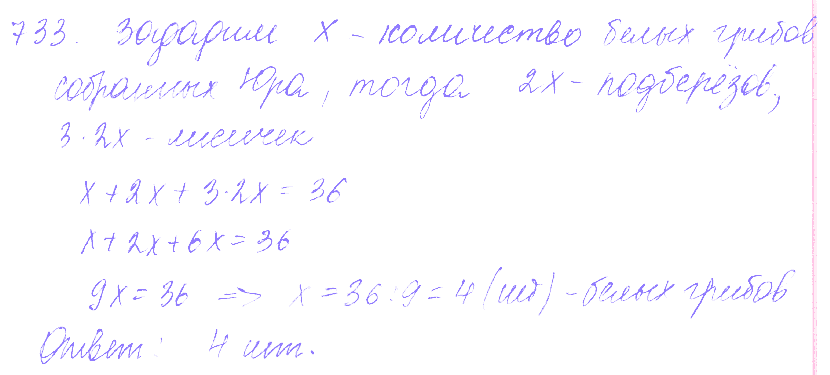 733. Зададим x - количество белых грибов
собранных Юра, тогда 2x - подберёзов,
3·2x - лисичек
x + 2x + 3·2x = 36
x + 2x + 6x = 36
9x = 36 => x = 36 : 9 = 4 (шт) - белых грибов
Ответ : 4 шт.